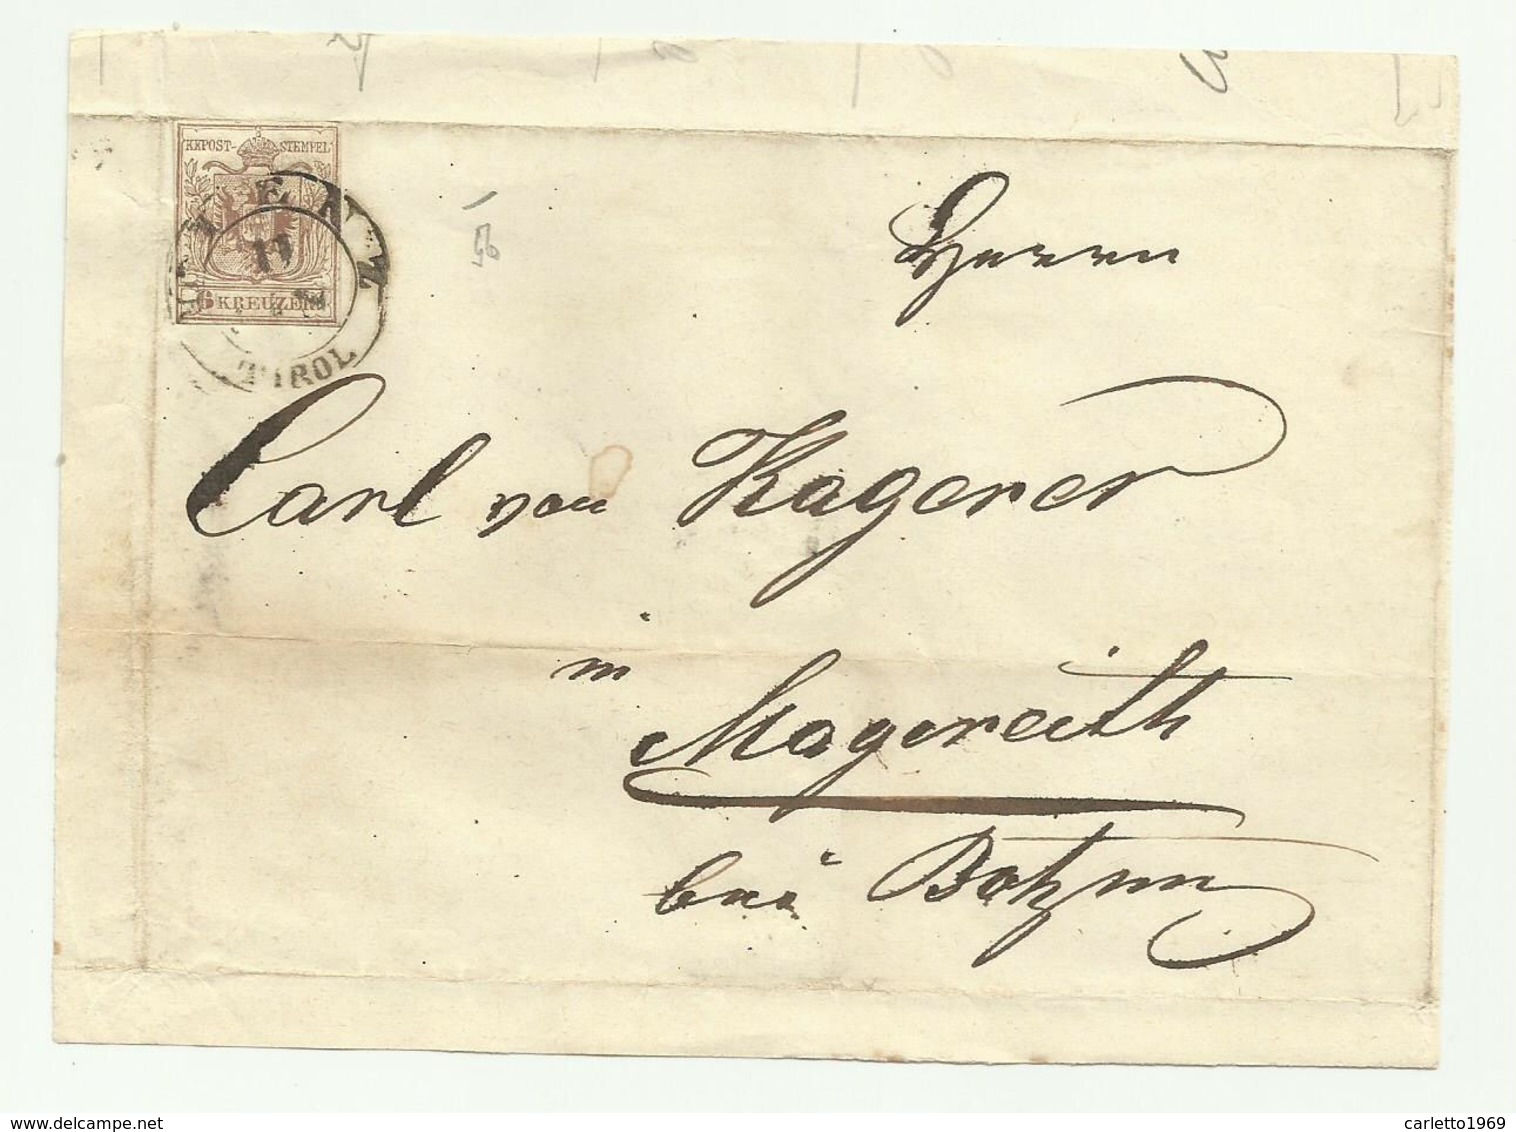 KKPOST-STEMPEL
LIENZ
11
6 KREUZER
TIROL
Herrn
Carl von Kagerer
in
Magereith
bei Botzen
www.delcampe.net
carletto1969